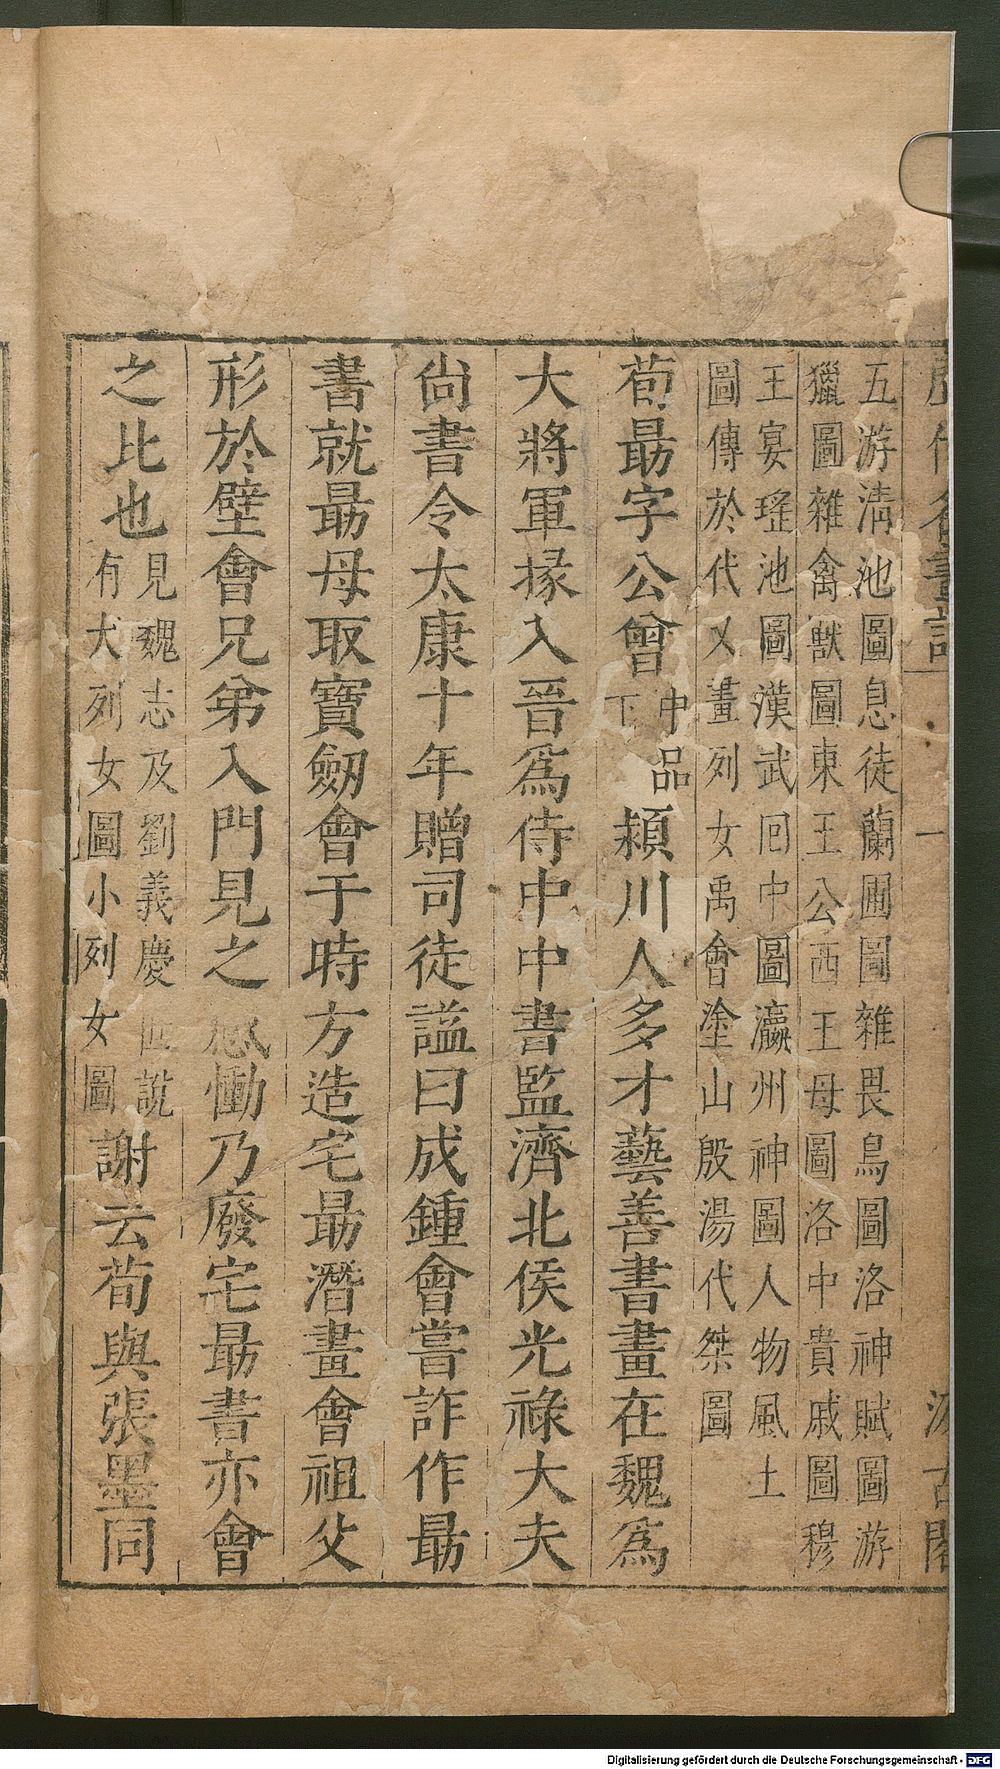 五游清池圖息徒蘭圃圖雜畏鳥圖洛神賦圖游
獵圖雜禽獸圖東王公西王母圖洛中貴戚圖穆
王宴瑤池圖漢武囘中圖瀛州神圖人物風土
圖傳於代又畫列女禹會塗山殷湯代桀圖
荀勗字公曾中品下潁川人多才藝善書畫在魏爲
大將軍掾入晉爲侍中中書監濟北侯光祿大夫
尙書令太康十年贈司徒謚曰成鍾會嘗詐作勗
書就勗母取寶劒會于時方造宅勗潛畫會祖父
形於壁會兄弟入門見之感慟乃廢宅勗書亦會
之比也見魏志及劉義慶世說
有大列女圖小列女圖
謝云荀與張墨同
Digitalisierung gefördert durch die Deutsche Forschungsgemeinschaft - DFG